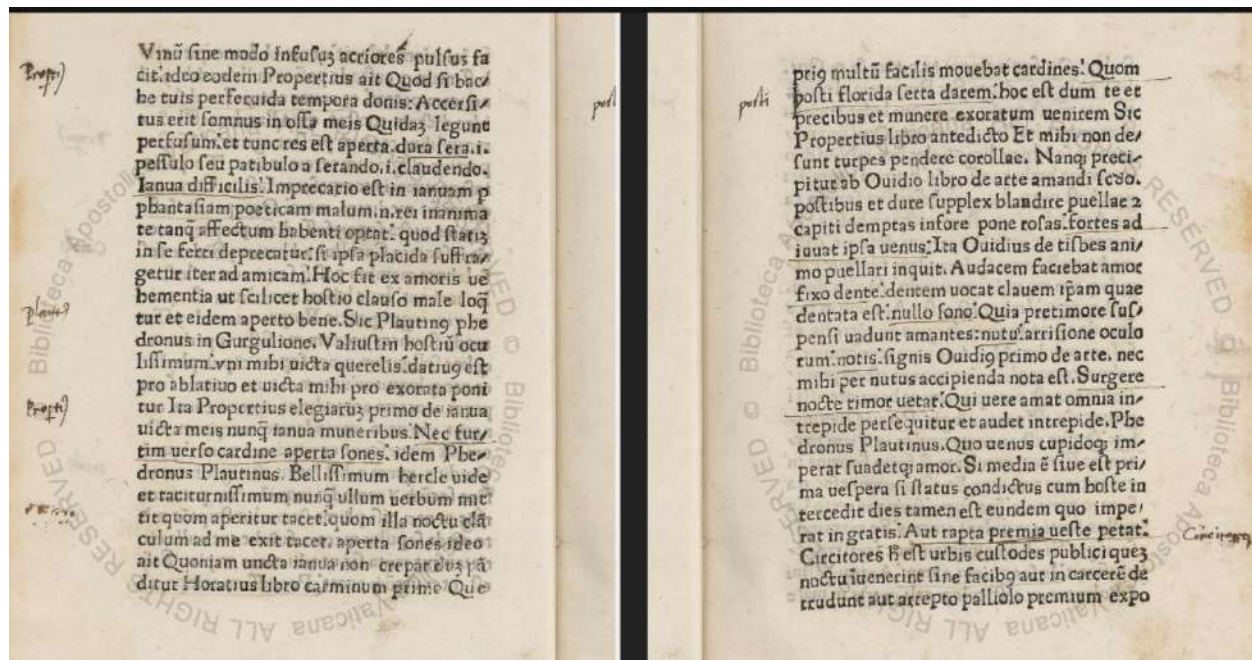 Propti
plaut9
Propti
Vinū sine modo infusuʒ acriores pulsus fa
cit. ideo eodem Propertius ait Quod si bac/
he tuis perferuida tempora donis: Accersi/
tus erit somnus in ossa meis Quidaʒ legunt
perfusum. et tunc res est aperta. dura sera. i.
pessulo seu patibulo a serando. i. claudendo.
Ianua difficilis. Imprecatio est in ianuam p
phantasiam poeticam malum. n. rei inanima
te tanq̄ affectum habenti optat. quod statiʒ
in se ferri deprecatur. si ipsa placida suffra/
getur iter ad amicam. Hoc fit ex amoris ue
hementia ut scilicet hostio clauso male loq̄
tur et eidem aperto bene. Sic Plautin9 phe
dronus in Gurgulione. Valiustm hostiū ocu
lissimum. vni mihi uicta querelis. datiu9 est
pro ablatiuo et uicta mihi pro exorata poni
tur Ita Propertius elegiaruʒ primo de ianua
uicta meis nunq̄ ianua muneribus. Nec fur/
tim uerso cardine aperta sones. idem Phe/
dronus Plautinus. Bellissimum hercle uide
et taciturnissimum nunq̄ ullum uerbum mit
tit quom aperitur tacet. quom illa noctu clā
culum ad me exit tacet. aperta sones ideo
ait Quoniam uncta ianua non crepat duʒ pā
ditur Horatius libro carminum primo Que
posti
posti
pri9 multū facilis mouebat cardines. Quom
posti florida serta darem. hoc est dum te et
precibus et munere exoratum uenirem Sic
Propertius libro antedicto Et mihi non de/
sunt turpes pendere corollae. Nanq; preci/
pitur ab Ouidio libro de arte amandi scdo.
postibus et dure supplex blandire puellae 2
capiti demptas infore pone rosas. fortes ad
iuuat ipsa uenus. Ita Ouidius de tisbes ani/
mo puellari inquit. Audacem faciebat amor
fixo dente. dentem uocat clauem ip̄am quae
dentata est. nullo sono. Quia pretimore sus/
pensi uadunt amantes: nutu. arrisione oculo
rum. notis. signis Ouidi9 primo de arte. nec
mihi per nutus accipienda nota est. Surgere
nocte timor uetat. Qui uere amat omnia in/
trepide persequitur et audet intrepide. Phe
dronus Plautinus. Quo uenus cupidoq; im/
perat suadetq; amor. Si media ē siue est pri/
ma uespera si status condictus cum hoste in
tercedit dies tamen est eundem quo impe/
rat ingratis. Aut rapta premia ueste petat.
Circitores
Circitores h̄ est urbis custodes publici queʒ
noctu iuenerint sine facib9 aut in carcerē de
trudunt aut arrepto palliolo premium expo
© Biblioteca Apostolica Vaticana ALL RIGHTS RESERVED
© Biblioteca Apostolica Vaticana ALL RIGHTS RESERVED